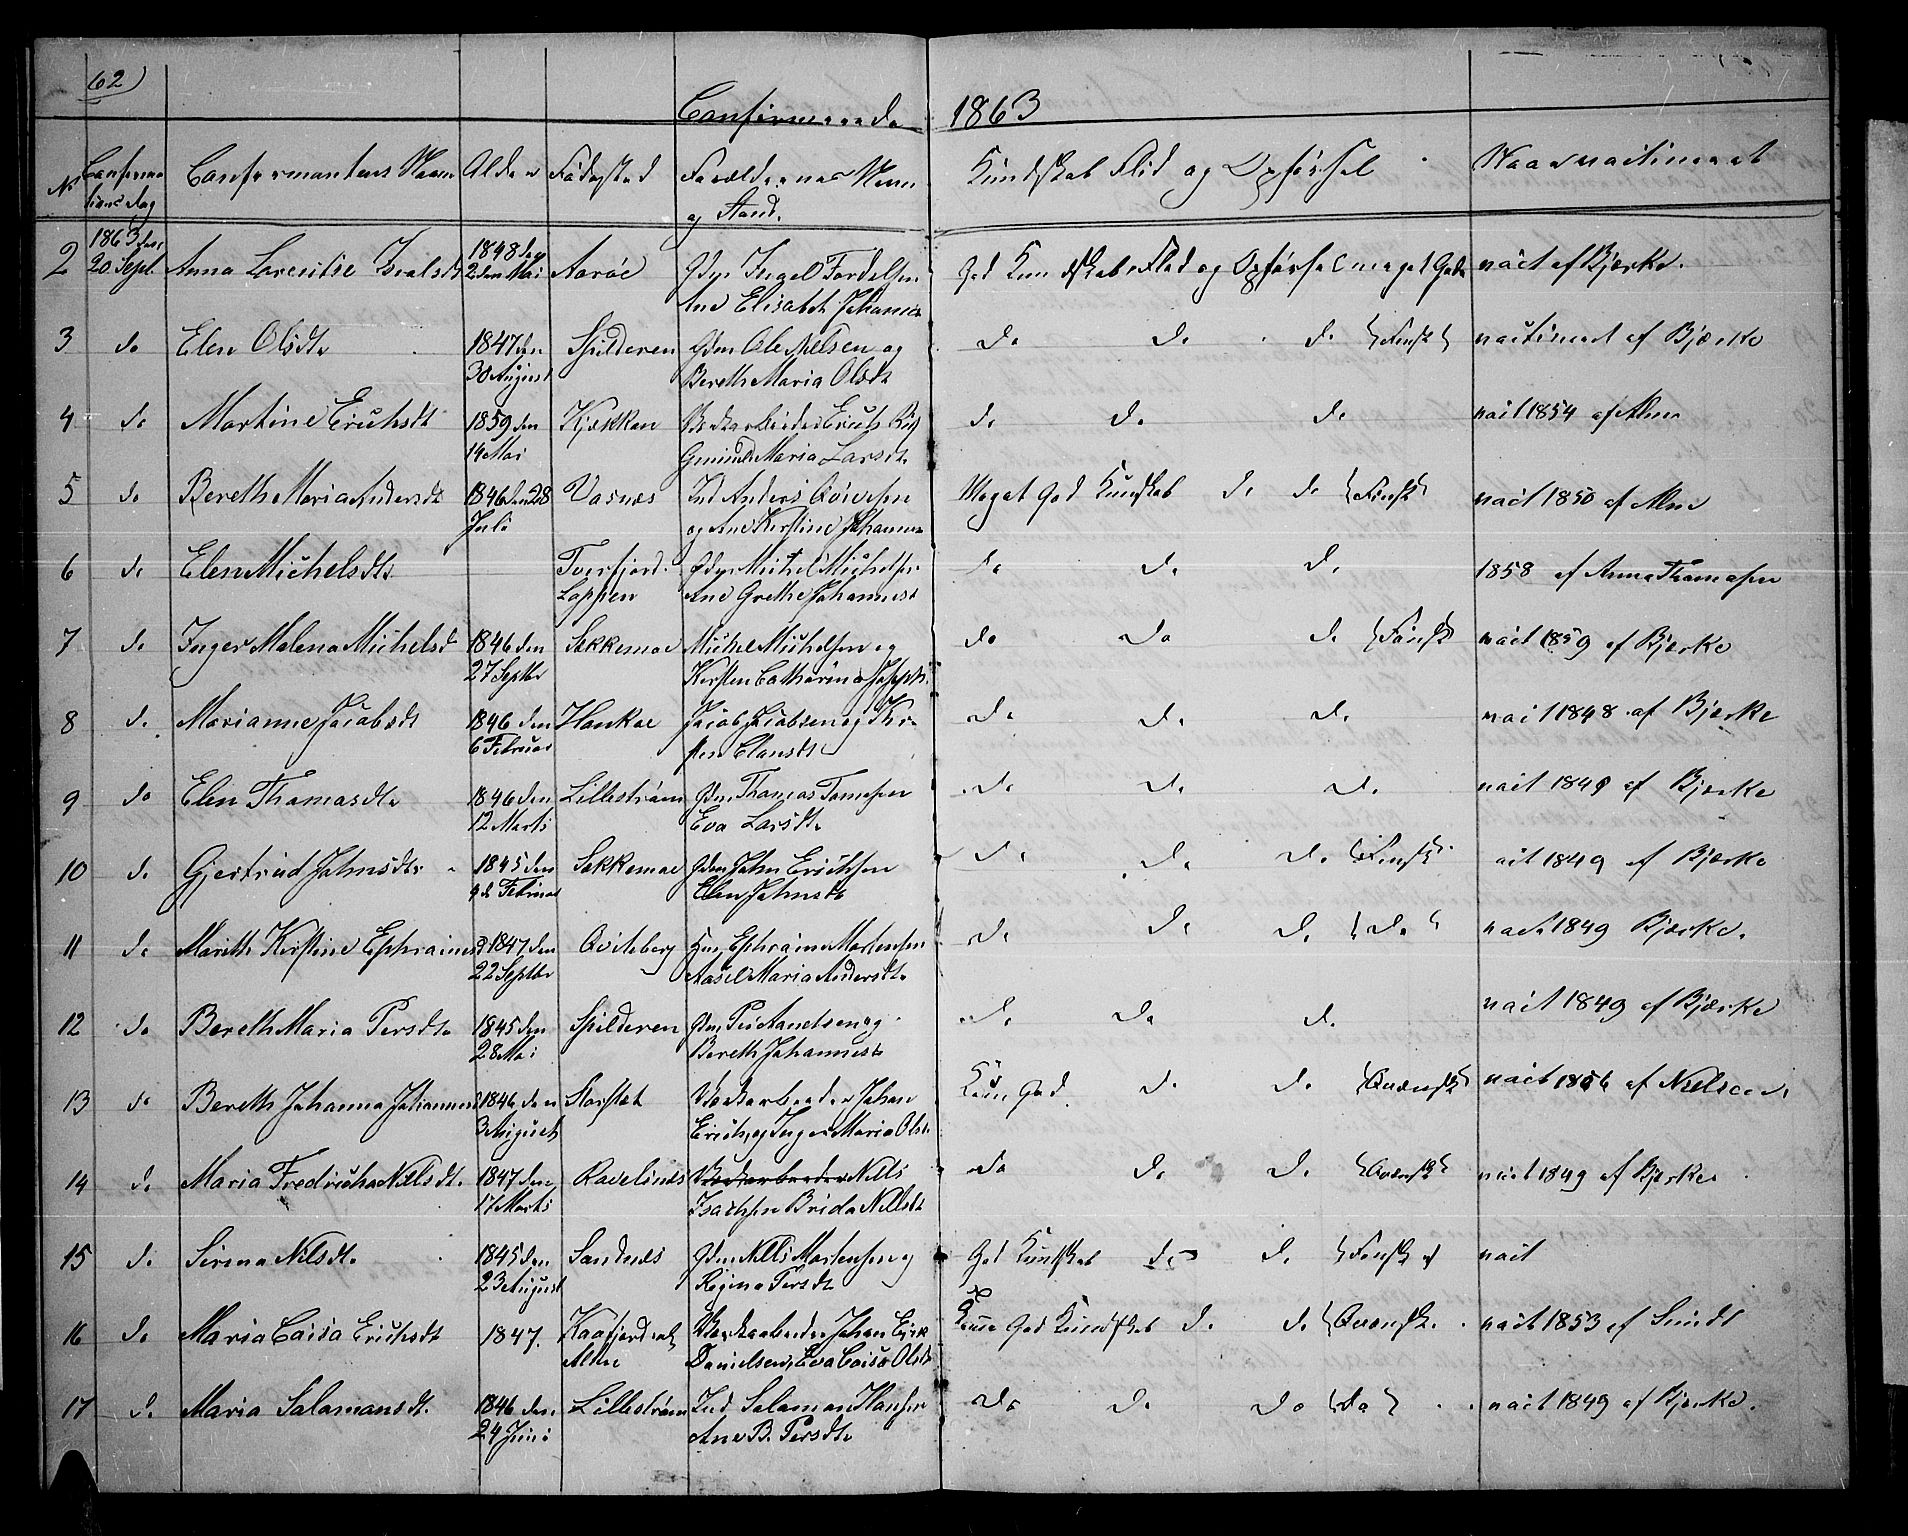 62)
Confirmerede 1863
No Confirmations dag Confirmantens Navn Alder Fødested Forældrenes Navn og Stand. Kundskab Flid og Opførsel Naar vaccineret
2 1863 den 20 Sept. Anna Lorentse 1848 den 2den Mai Aarøe Gdm Ingel Ane Elisabeth God Kundskab Flid og Opførsel meget Gode vacit af Bjerke.
3 do Elen Olsdt. 1847 den 30 August Spilderen Gdm Ole Nielsen og Bereth Maria Olsdt do do do {Finsk} vacineret af Bjerke
4 do Martine Erichsdt 1859 den 14 Mai Kjækken Værkarbeider Erich Maria Larsdt. do do do vacit 1854 af
5 do Bereth Maria Andersdt 1846 den 28 Juli Vasnæs Ind Anders og Ane Kirstine Meget God Kundskab do do {Finsk} vacit 1850 af
6 do Elen Michelsdt. Tverfjord Loppen Gdm Michel Michelsen Ane Grethe Johannesd do do do 1858 af Anna Thomasen
7 do Inger Malena Michelsd 1846 den 27 Septbr Sakkemoe Michel Michelsen og Kirsten Catharina do do do {Finsk} vacit 1859 af Bjerke
8 do Marianne Jacobsdt 1846 den 6 Februar Jacob Jacobsen og Kirsten Clausdt do do do vacit 1848 af Bjerke
9 do Elen Thomasdt. 1846 den 12 Marts Lillestrøm Gdm Thomas Tomasen Eva Larsdt. do do do vacit 1849 af Bjerke
10 do Gjertrud Johnsdt. 1845 den 9de Februar Sakkemoe Gdm John Erichsen Elen Johnsdt do do do {Finsk} vacit 1849 af Bjerke
11 do Mareth Kirstine Ephraimsd 1847 den 22 Septbr Qviteberg Ephraim Mortensen Maria Andersdt. do do do {do} vacit 1849 Bjerke.
12 do Bereth Maria Persdt. 1845 den 28 Mai Spilderen Gdm Per Aanetsen og Bereth Johannesd do do do vacit 1849 af Bjerke
13 do Bereth Johanna Johannesd 1846 den 3 August Storslet Værkarbeider Johan Erichs. og Inger Maria Olsdt God do do {Qvænsk} vacit 1856 af Nielsen.
14 do Maria Fredricha Nilsdt. 1847 den 17 Marts Ravelinæs Værkarbeider Nils Isachsen Brida Nilsdt do do do {Qvænsk} vacit 1849 af Bjerke
15 do Sirina Nilsdt. 1845 den 23 August Sandnæs Gdm Nils Mortensen og Regina Persdt God Kundskab do do {Finsk} vacit
16 do Maria Caisa Erichsdt 1847. Kaafjorddal Alten Værkarbeider Johan Erik Danielsen, Eva Caisa Olsdt God Kundskab do do {Qvænsk. vacit 1853 af Sundt
17 do Maria Salamonsdt. 1846 den 24 Juni Lillestrøm Ind Salamon Hansen Ane B. Persdt. do do do {do} vacit 1849 af Bjerke.